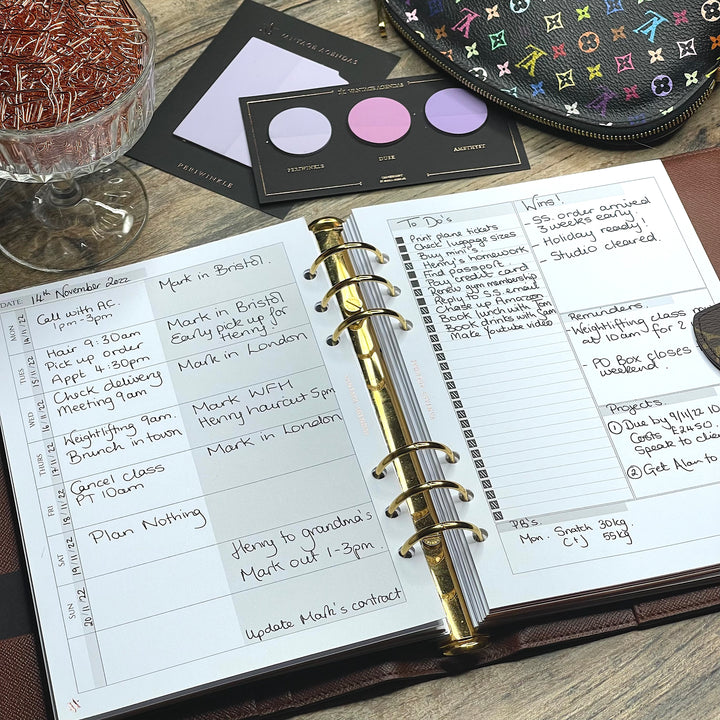 VANTAGE AGENDAS
PERIWINKLE
VANTAGE AGENDAS
PERIWINKLE
DUSK
AMETHYST
DATE: 14th November 2022
MON 14/11/22
Call with AC.
1pm-3pm
Mark in Bristol.
TUES 15/11/22
Hair 9:30am
Pick up order
Appt 4:30pm
Mark in Bristol
Early pick up for
Henry
WED 16/11/22
Check delivery
Meeting 9am
Mark in London
THURS 17/11/22
Weightlifting 9am.
Brunch in town
Mark WFH
Henry haircut 5pm
FRI 18/11/22
Cancel class
PT 10am
Mark in London
SAT 19/11/22
Plan Nothing
Henry to grandma's
Mark out 1-3pm.
SUN 20/11/22
Update Mark's contract
To Do's
Print plane tickets
Check luggage sizes
Buy mini
Henry's homework
Find passport
Pay credit card
Renew gym membership
Reply to S.S. email
Chase up Amazon
Book lunch with
Book drinks with
Make Youtube video
Wins!
- S.S. order arrived
3 weeks early!
- Holiday ready!
- Studio cleared.
Reminders.
- Weightlifting class
at 10am for 2
- PO Box closes
weekend.
Projects.
① Due by 9/11/22 10
Costs £2450.
Speak to
② Get Alan to
PB's.
Mon. Snatch 30kg.
C+J 55kg